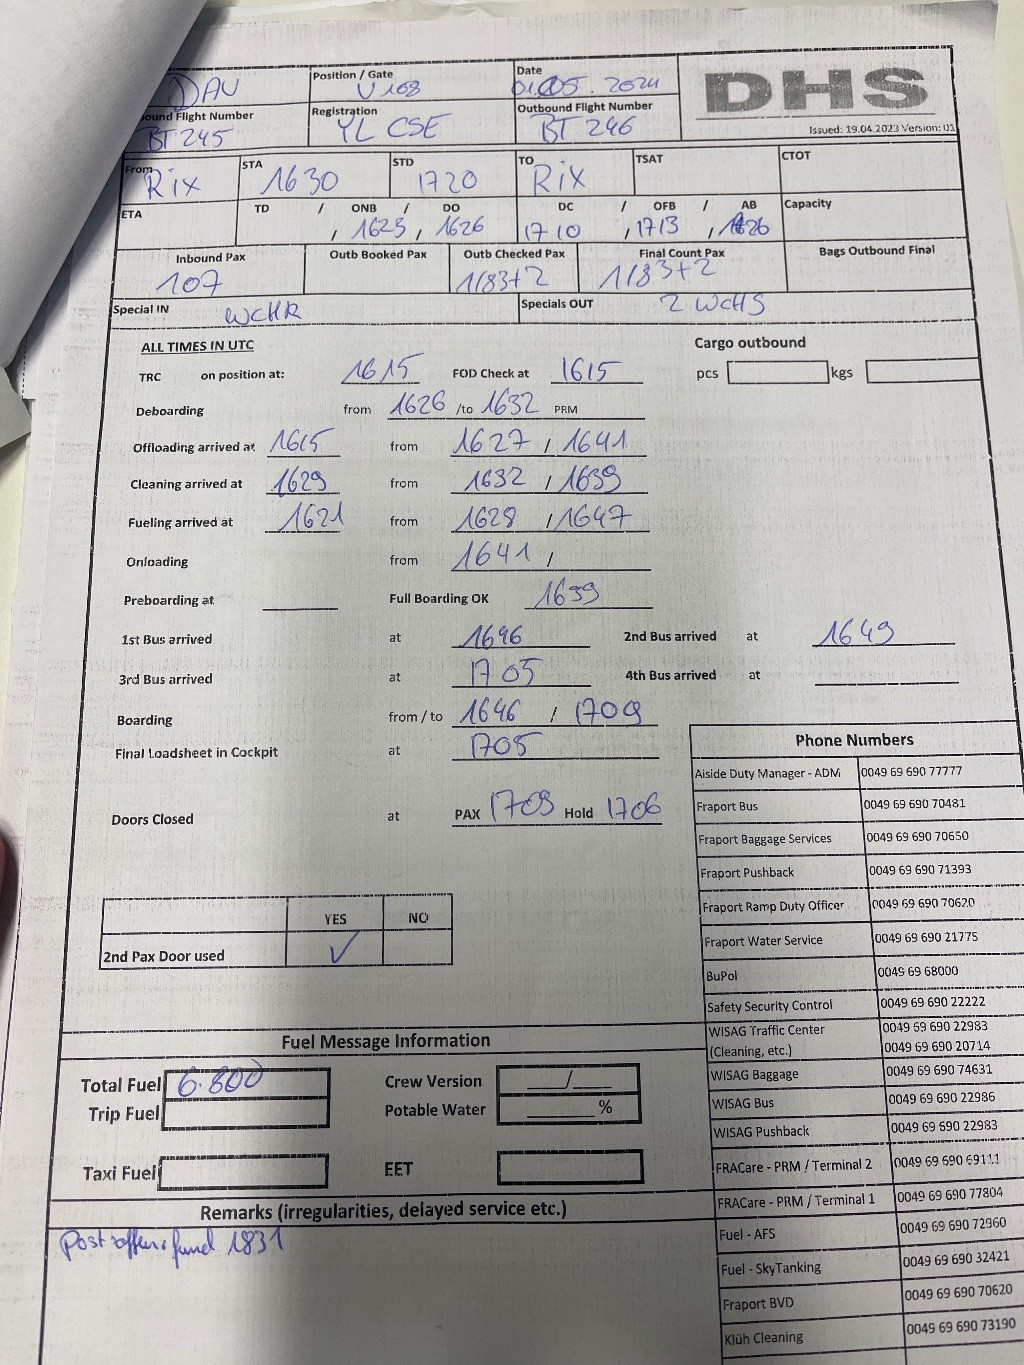 DAU
Position / Gate
V 168
Date
01.05.2024
DHS
Issued: 19.04.2023 Version: 01
ound Flight Number
BT 245
Registration
YL CSE
Outbound Flight Number
BT 246
From RIX
STA 1630
STD 1720
TO RIX
TSAT
CTOT
ETA
TD / ONB / DO
, 1623, 1626
DC / OFB / AB
1710 , 1713
Capacity
Inbound Pax
107
Outb Booked Pax
Outb Checked Pax
1/83+2
Final Count Pax
1/83+2
Bags Outbound Final
Special IN WCHR
Specials OUT 2 WCHS
ALL TIMES IN UTC
Cargo outbound
TRC on position at: 1615 FOD Check at 1615
pcs kgs
Deboarding from 1626 /to 1632 PRM
Offloading arrived at 1615 from 1627 / 1641
Cleaning arrived at 1629 from 1632 / 1639
Fueling arrived at 1621 from 1628 / 1647
Onloading from 1641 /
Preboarding at Full Boarding OK 1639
1st Bus arrived at 1646 2nd Bus arrived at 1649
3rd Bus arrived at 1705 4th Bus arrived at
Boarding from / to 1646 / 1709
Final Loadsheet in Cockpit at 1705
Doors Closed at PAX 1709 Hold 1706
YES NO
2nd Pax Door used ✓
Phone Numbers
Aiside Duty Manager - ADM 0049 69 690 77777
Fraport Bus 0049 69 690 70481
Fraport Baggage Services 0049 69 690 70650
Fraport Pushback 0049 69 690 71393
Fraport Ramp Duty Officer 0049 69 690 70620
Fraport Water Service 0049 69 690 21775
BuPol 0049 69 68000
Safety Security Control 0049 69 690 22222
WISAG Traffic Center 0049 69 690 22983
(Cleaning, etc.) 0049 69 690 20714
WISAG Baggage 0049 69 690 74631
WISAG Bus 0049 69 690 22986
WISAG Pushback 0049 69 690 22983
FRACare - PRM / Terminal 2 0049 69 690 69111
FRACare - PRM / Terminal 1 0049 69 690 77804
Fuel - AFS 0049 69 690 72960
Fuel - SkyTanking 0049 69 690 32421
Fraport BVD 0049 69 690 70620
Klüh Cleaning 0049 69 690 73190
Fuel Message Information
Total Fuel 6.800
Crew Version /
Trip Fuel
Potable Water %
Taxi Fuel
EET
Remarks (irregularities, delayed service etc.)
Post 1831